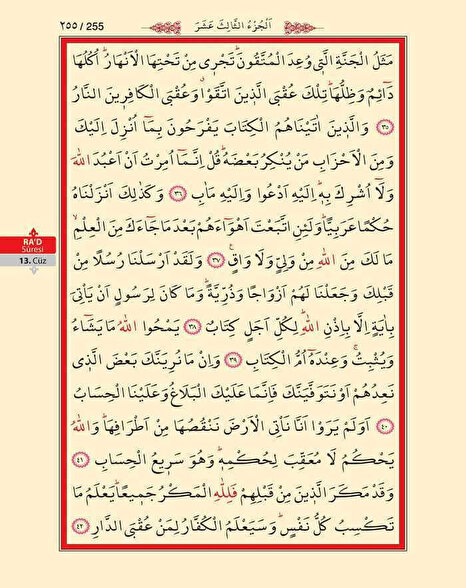 ٢٥٥ / 255
اَلْجُزْءُ الثَّالِثَ عَشَرَ
مَثَلُ الْجَنَّةِ الَّتٖي وُعِدَ الْمُتَّقُونَؕ تَجْرٖي مِنْ تَحْتِهَا الْاَنْهَارُؕ اُكُلُهَا
دَٓائِمٌ وَظِلُّهَاؕ تِلْكَ عُقْبَى الَّذٖينَ اتَّقَوْاࣗ وَعُقْبَى الْكَافِرٖينَ النَّارُ
﴿٣٥﴾ وَالَّذٖينَ اٰتَيْنَاهُمُ الْكِتَابَ يَفْرَحُونَ بِمَٓا اُنْزِلَ اِلَيْكَ
وَمِنَ الْاَحْزَابِ مَنْ يُنْكِرُ بَعْضَهُؕ قُلْ اِنَّمَٓا اُمِرْتُ اَنْ اَعْبُدَ اللّٰهَ
وَلَٓا اُشْرِكَ بِهٖؕ اِلَيْهِ اَدْعُوا وَاِلَيْهِ مَاٰبِ ﴿٣٦﴾ وَكَذٰلِكَ اَنْزَلْنَاهُ
حُكْمًا عَرَبِيًّاؕ وَلَئِنِ اتَّبَعْتَ اَهْوَٓاءَهُمْ بَعْدَ مَا جَٓاءَكَ مِنَ الْعِلْمِۙ
مَا لَكَ مِنَ اللّٰهِ مِنْ وَلِيٍّ وَلَا وَاقٍࣖ ﴿٣٧﴾ وَلَقَدْ اَرْسَلْنَا رُسُلًا مِنْ
قَبْلِكَ وَجَعَلْنَا لَهُمْ اَزْوَاجًا وَذُرِّيَّةًؕ وَمَا كَانَ لِرَسُولٍ اَنْ يَأْتِيَ
بِاٰيَةٍ اِلَّا بِاِذْنِ اللّٰهِؕ لِكُلِّ اَجَلٍ كِتَابٌ ﴿٣٨﴾ يَمْحُوا اللّٰهُ مَا يَشَٓاءُ
وَيُثْبِتُۚ وَعِنْدَهُٓ اُمُّ الْكِتَابِ ﴿٣٩﴾ وَاِنْ مَا نُرِيَنَّكَ بَعْضَ الَّذٖي
نَعِدُهُمْ اَوْ نَتَوَفَّيَنَّكَ فَاِنَّمَا عَلَيْكَ الْبَلَاغُ وَعَلَيْنَا الْحِسَابُ
﴿٤٠﴾ اَوَلَمْ يَرَوْا اَنَّا نَأْتِي الْاَرْضَ نَنْقُصُهَا مِنْ اَطْرَافِهَاؕ وَاللّٰهُ
يَحْكُمُ لَا مُعَقِّبَ لِحُكْمِهٖؕ وَهُوَ سَرٖيعُ الْحِسَابِ ﴿٤١﴾
وَقَدْ مَكَرَ الَّذٖينَ مِنْ قَبْلِهِمْ فَلِلّٰهِ الْمَكْرُ جَمٖيعًاؕ يَعْلَمُ مَا
تَكْسِبُ كُلُّ نَفْسٍؕ وَسَيَعْلَمُ الْكُفَّارُ لِمَنْ عُقْبَى الدَّارِ ﴿٤٢﴾
RA'D
Sûresi
13. Cüz